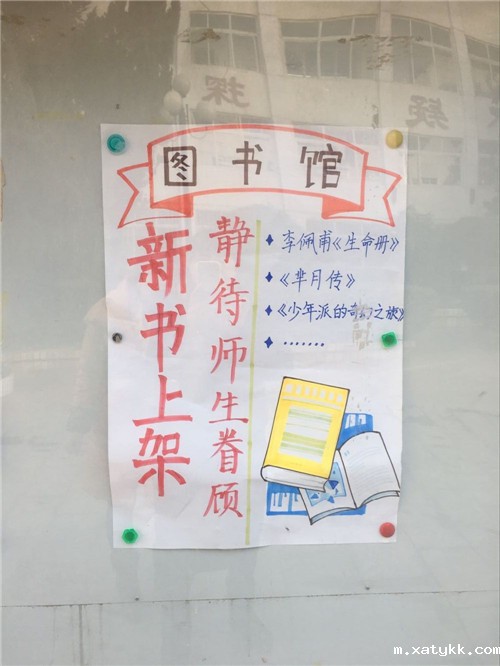 图书馆
新书上架
静待师生眷顾
李佩甫《生命册》
《芈月传》
《少年派的奇幻之旅》
.......
探
疑
m.xatykk.com